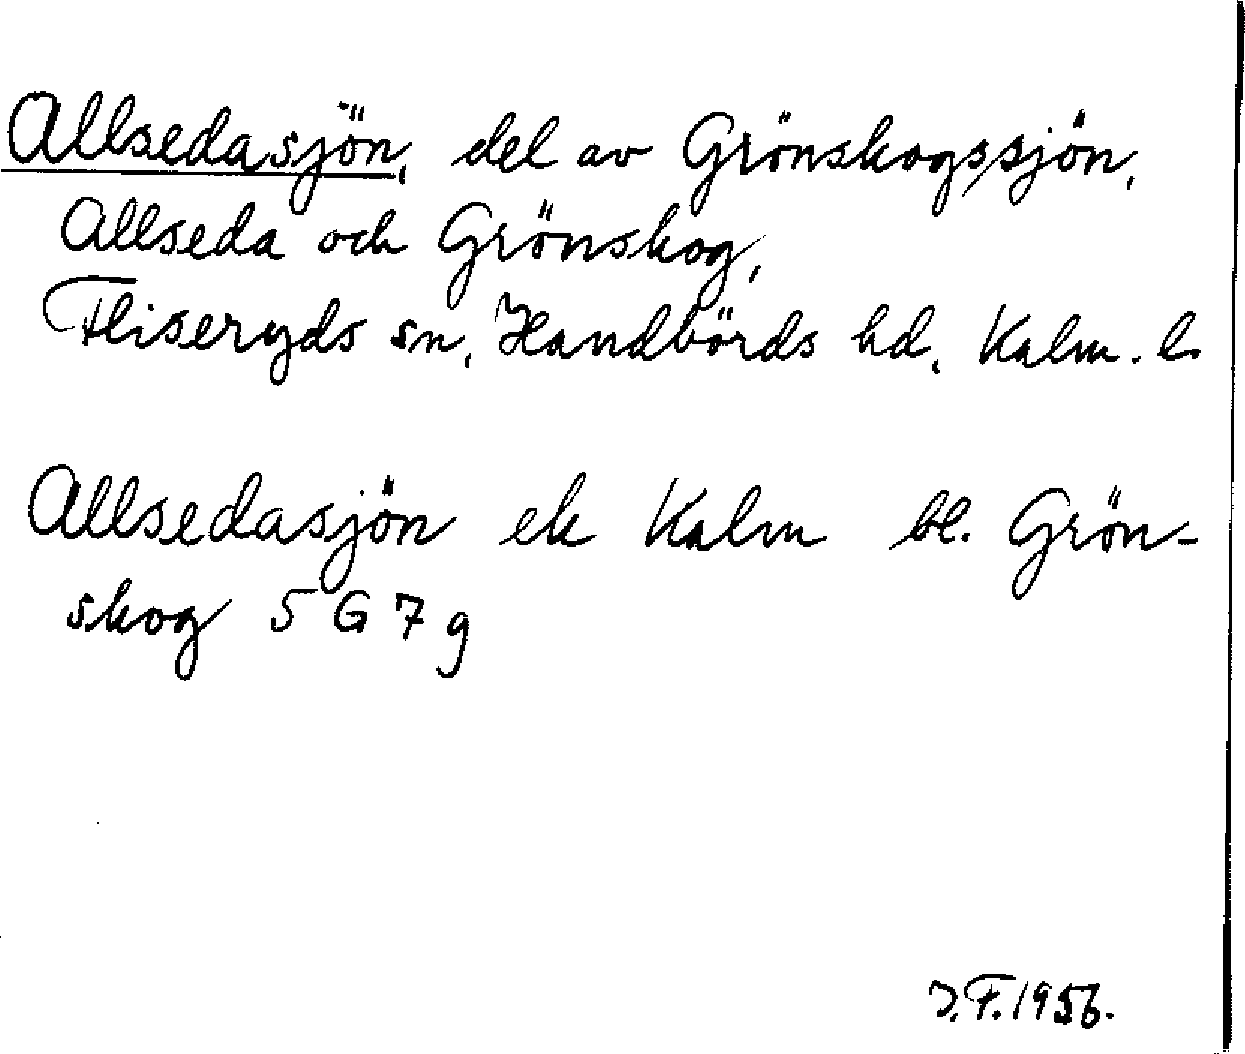 Allsedasjön, del av Grönskogssjön,
Allseda och Grönskog,
Fliseryds sn, Handbörds hd, Kalm. l.
Allsedasjön ek Kalm bl. Grön-
skog 5 G 7 g
J.F. 1956.